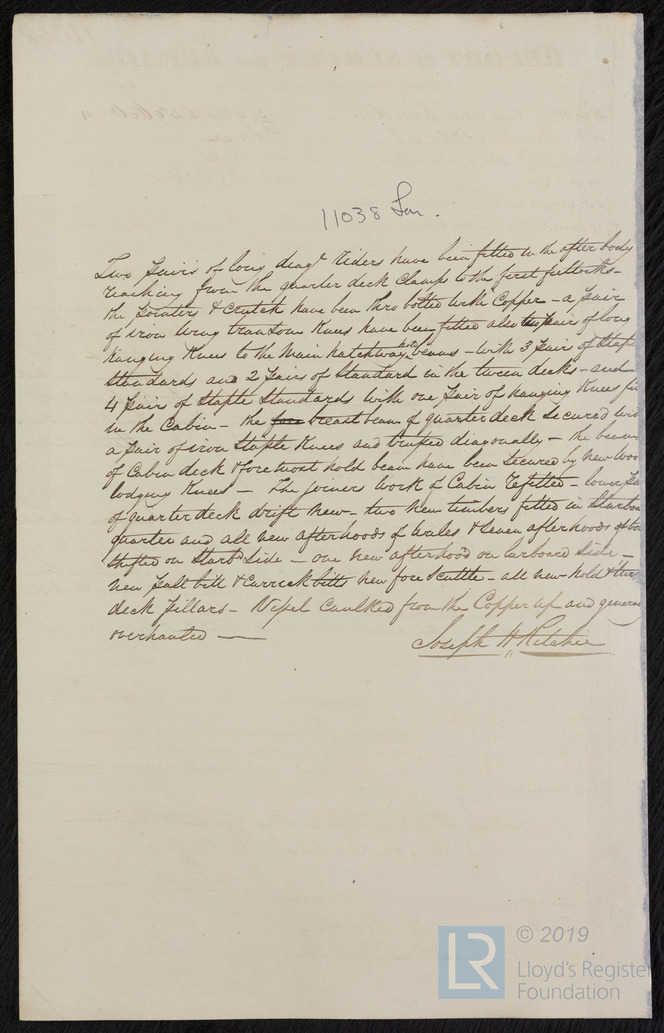 11038 Lon.
Two pairs of long diagl riders have been fitted in the after body
reaching from the quarter deck clamps to the first futtocks -
the pointers & crutch have been thro bolted with Copper - a pair
of iron wing transom Knees have been fitted also pair of long
hanging Knees to the main hatchway beams - with 3 pairs of stap
Standards and 2 pairs of Standard in the tween decks - and
4 pairs of Staple Standards with one pair of hanging Knees fi
in the Cabin - the fore breast beam of quarter deck secured wi
a pair of iron Staple Knees and trussed diagonally - the beam
of Cabin deck & foremost hold beam have been secured by new woo
lodging Knees - The joiners work of Cabin refitted -
of quarter deck drift new - two new timbers fitted in Starboa
quarter and all new afterhoods of wales & seven afterhoods of bo
shifted on Starbd Side - one new afterhood on larboard Side -
new pall bitt & carrick bitts new fore scuttle - all new hold & twe
deck pillars - Vessel caulked from the Copper up and genera
overhauled -
Joseph H Ritchie
© 2019
LR
Lloyd's Register
Foundation